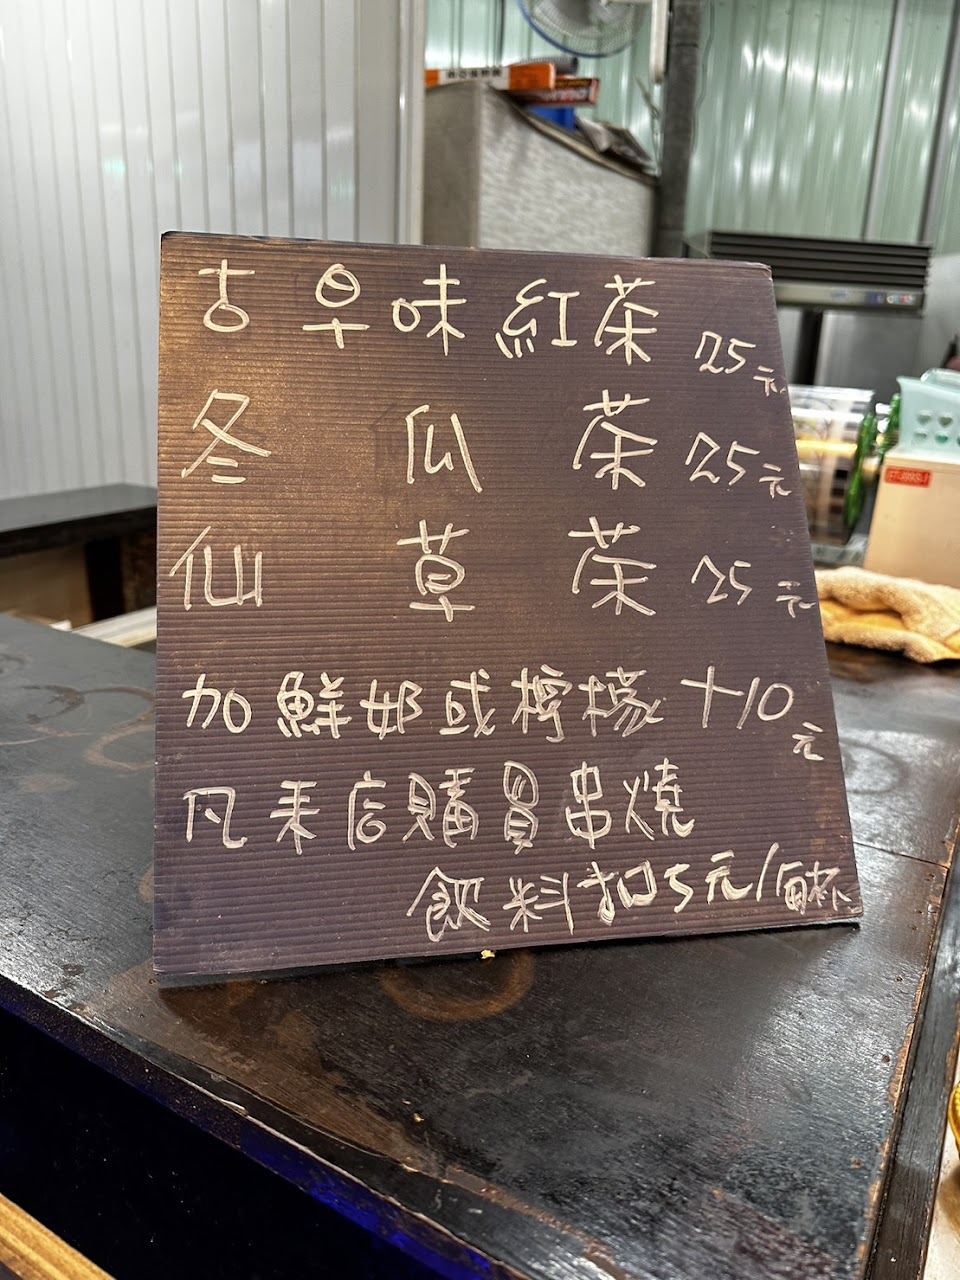 古早味紅茶 25元
冬瓜茶 25元
仙草茶 25元
加鮮奶或檸檬 +10元
凡來店購買串燒
飲料扣5元/每杯